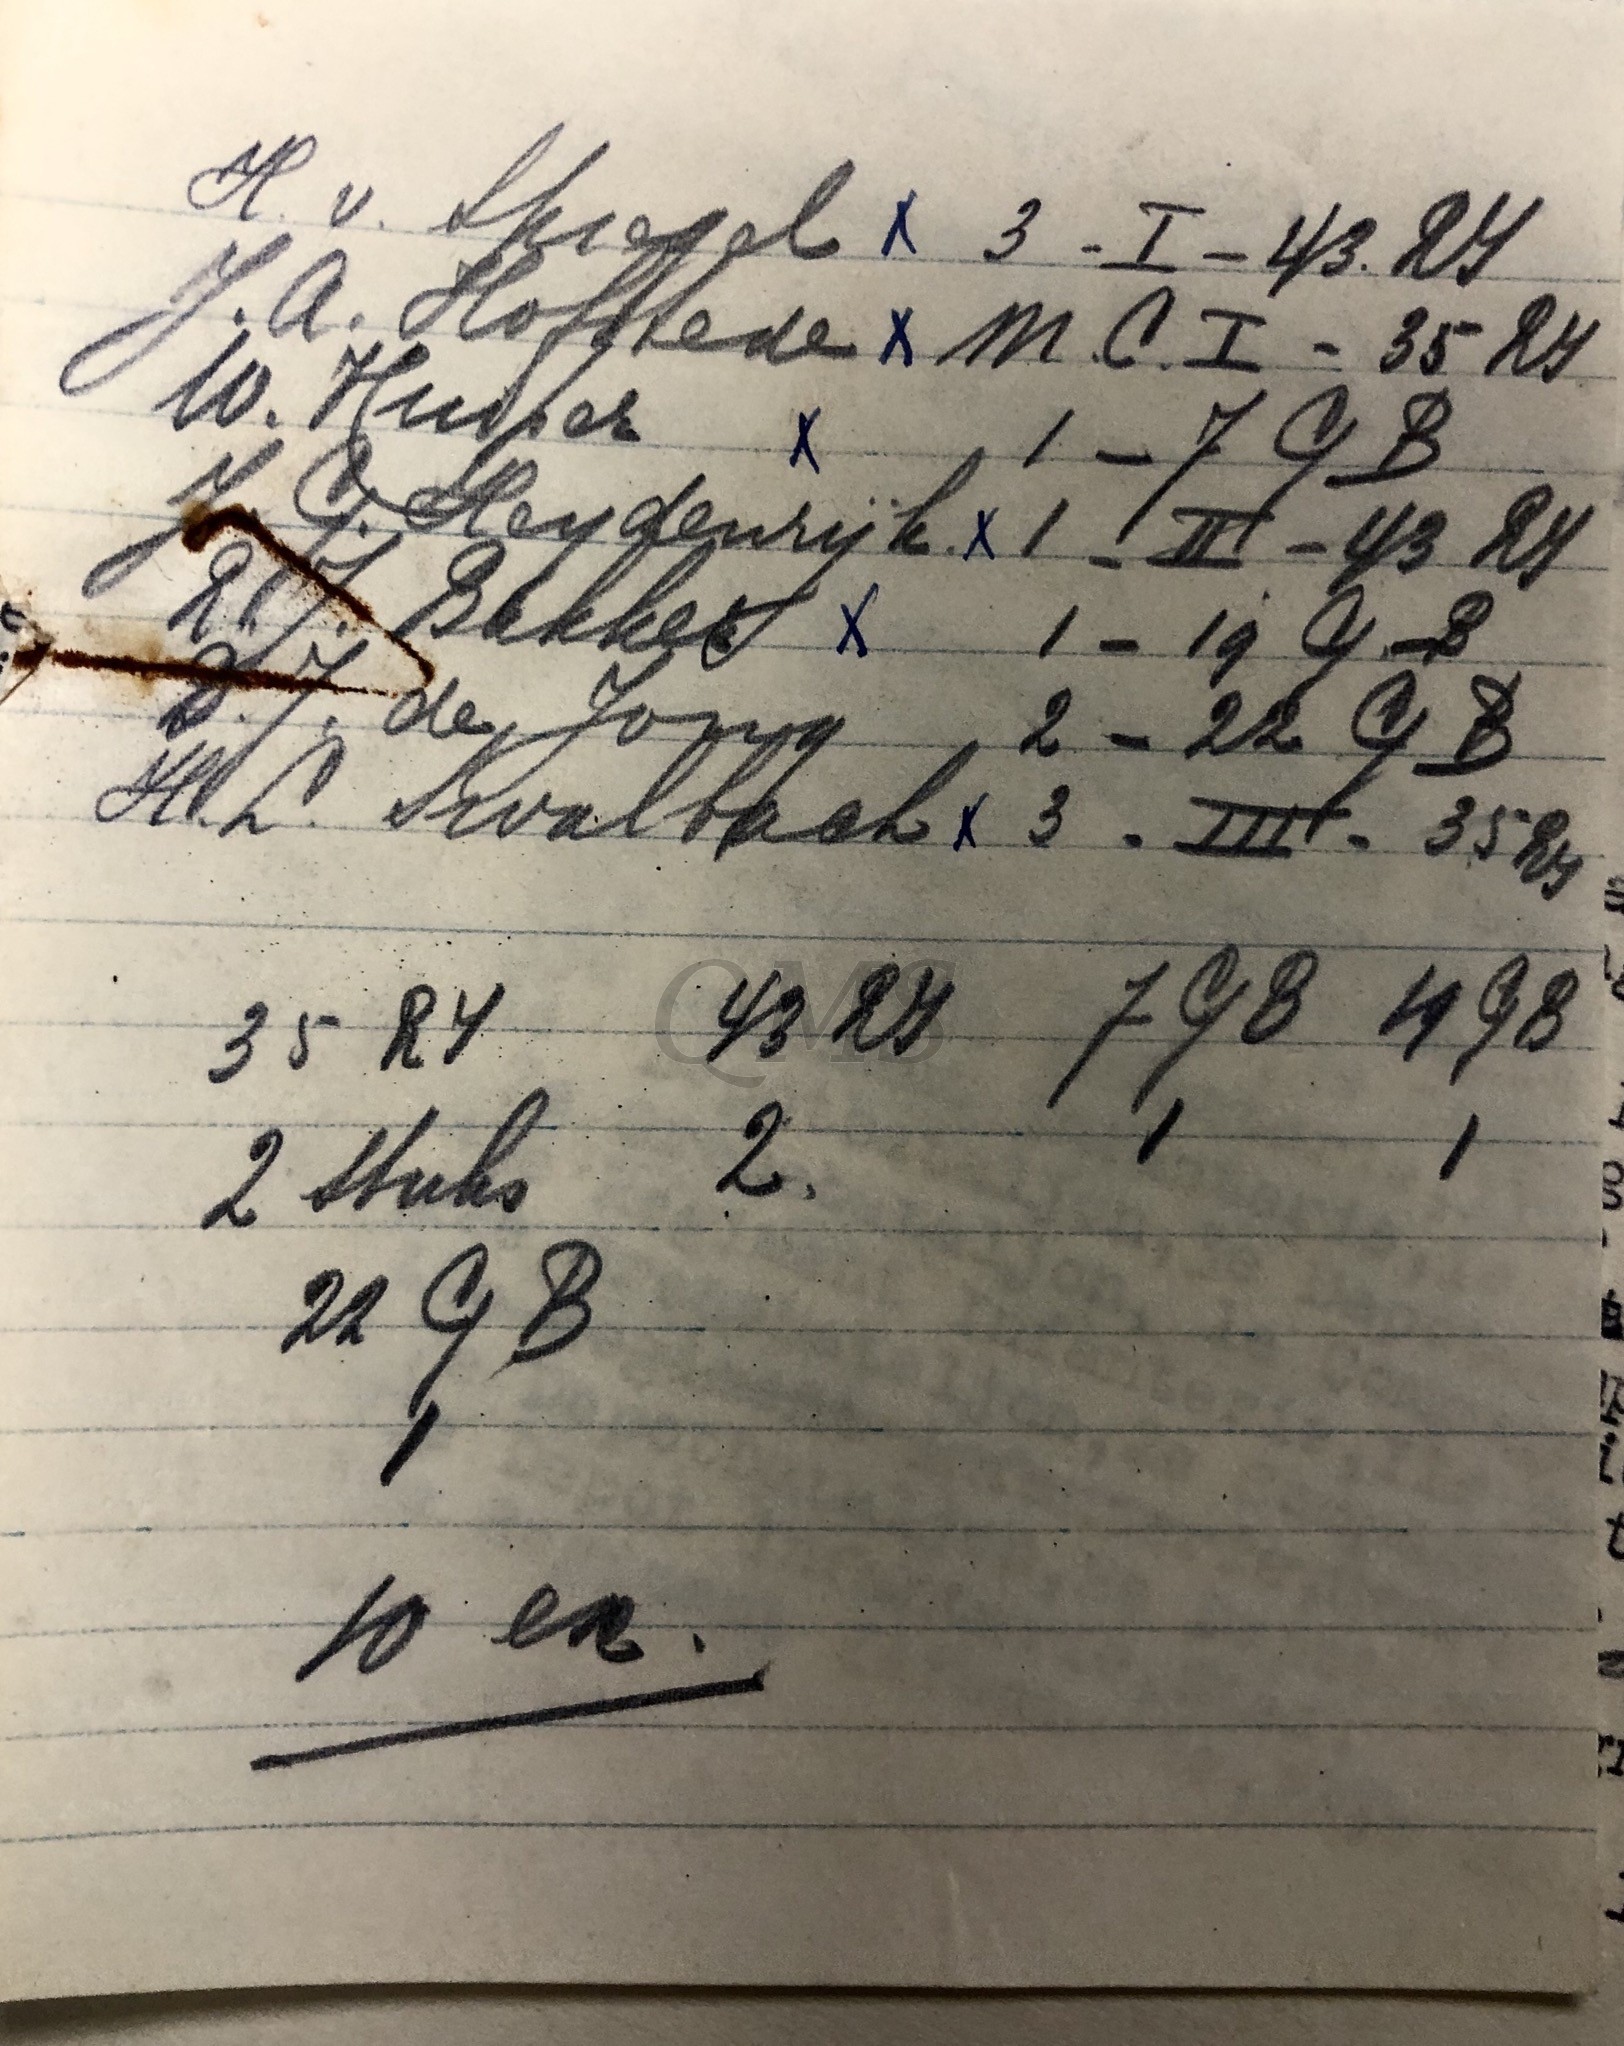 H. v. Spiegel x 3 - I - 43. RY
J. A. Hofstede x M.C. I - 35 RY
W. Huiser x 1 - 7 G B
J. G. Heydenrijk. x 1 - II - 43 RY
R. J. Bakker x 1 - 19 G.B
D. J. de Jong 2 - 22 G B
H. L. Swalbach x 3 - III - 35 RY
35 RY 43 RY 7 GB 19 GB
2 stuks 2. 1 1
22 G B
1
10 ex.
QMS